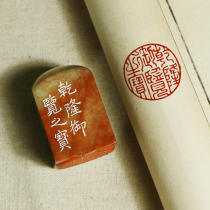 乾隆御
覽之寶
乾隆
御覽
之寶